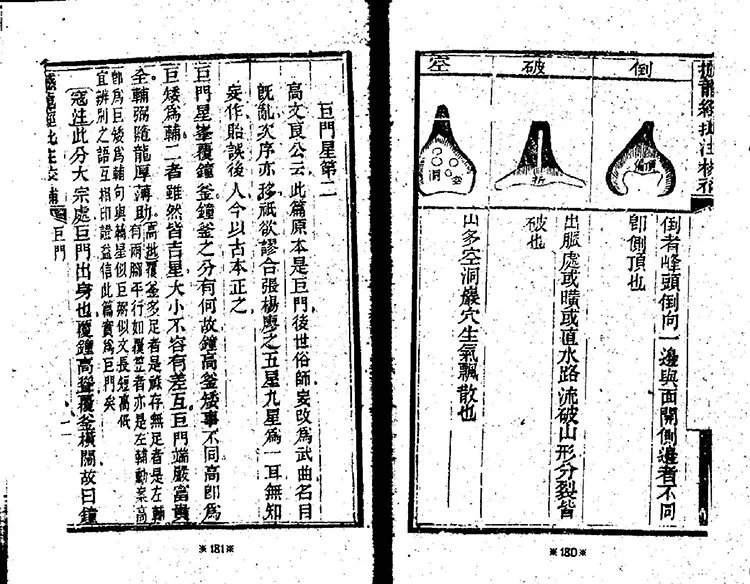 倒
倒者峰頭倒向一邊與面開側邊者不同
即側頂也
破
折
出脈處或曠或直水路流破山形分裂皆
破也
空
空
洞
山多空洞巖穴生氣飄散也
※180※
巨門星第二
高文良公云此篇原本是巨門後世俗師妄改爲武曲名目
旣亂次序亦移祇欲謬合張楊廖之五星九星爲一耳無知
妄作貽誤後人今以古本正之
巨門星峯覆鐘釜鐘釜之分有何故鐘高釜矮事不同高卽爲
巨矮爲輔二者雖然皆吉星大小不容有差互巨門端嚴富貴
全輔弼隨龍厚薄助
高逃覆釜多足者是祿存無足者是左輔
有兩腳平行如覆笠者亦是左輔動案高
卽爲巨矮爲輔句與輔星似巨弼似文長短高低
宜辨別之語互相印證益信此篇實爲巨門矣
寇注此分大宗處巨門出身也覆鐘高聳覆釜橫闊故曰鐘
巨門
※181※